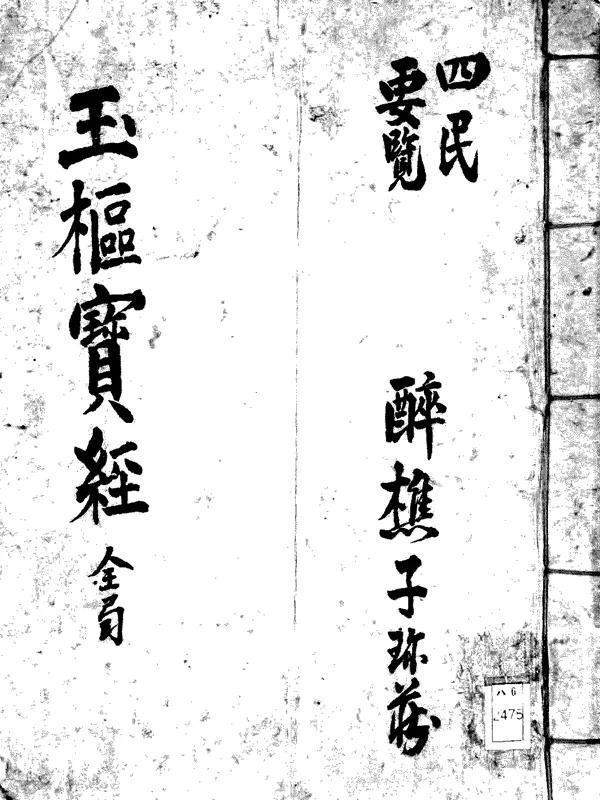 四民
要覽
醉樵子珎藏
玉樞寶經 全局
ハ6
475